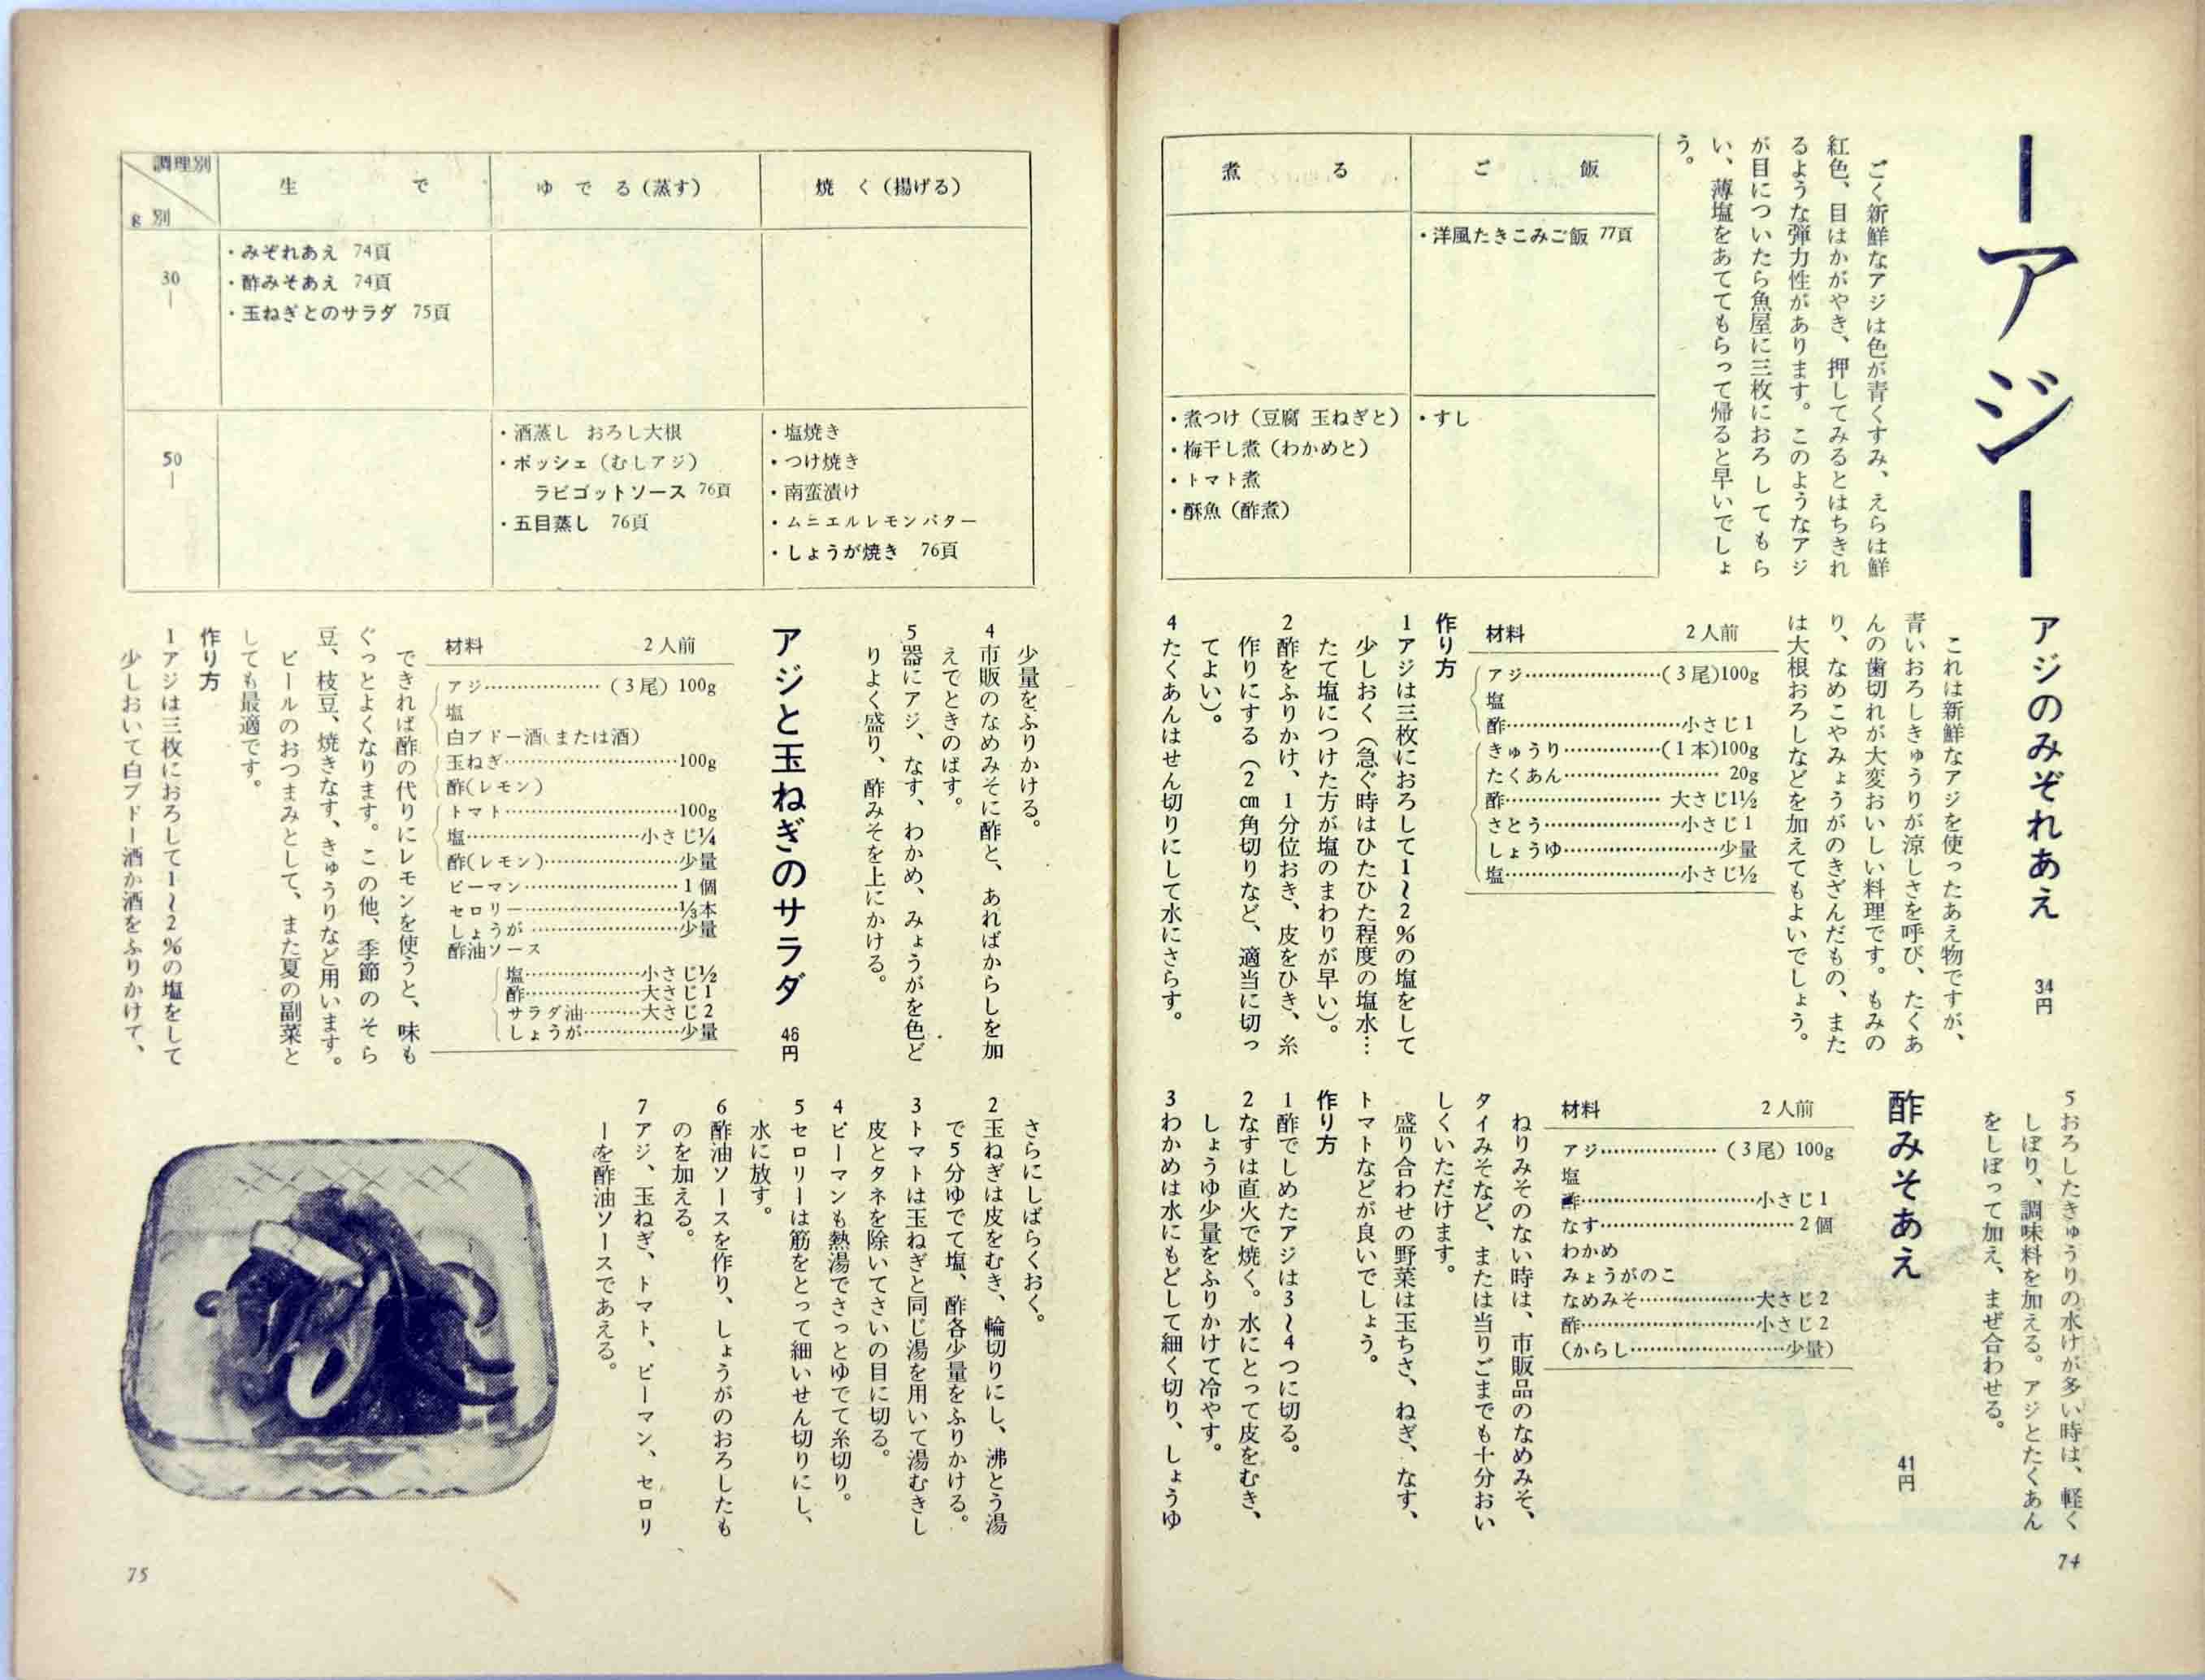 ーアジー
ごく新鮮なアジは色が青くすみ、えらは鮮
紅色、目はかがやき、押してみるとはちきれ
るような弾力性があります。このようなアジ
が目についたら魚屋に三枚におろしてもら
い、薄塩をあててもらって帰ると早いでしょ
う。
煮る
ご飯
・洋風たきこみご飯 77頁
・煮つけ（豆腐 玉ねぎと）
・梅干し煮（わかめと）
・トマト煮
・酥魚（酢煮）
・すし
アジのみぞれあえ 34円
これは新鮮なアジを使ったあえ物ですが、
青いおろしきゅうりが涼しさを呼び、たくあ
んの歯切れが大変おいしい料理です。もみの
り、なめこやみょうがのきざんだもの、また
は大根おろしなどを加えてもよいでしょう。
材料 2人前
アジ…………………(3尾)100g
塩
酢………………………小さじ1
きゅうり……………(1本)100g
たくあん…………………… 20g
酢…………………… 大さじ1½
さとう…………………小さじ1
しょうゆ……………………少量
塩………………………小さじ½
作り方
1 アジは三枚におろして1〜2％の塩をして
少しおく（急ぐ時はひたひた程度の塩水…
たて塩につけた方が塩のまわりが早い）。
2 酢をふりかけ、1分位おき、皮をひき、糸
作りにする（2cm角切りなど、適当に切っ
てよい）。
4 たくあんはせん切りにして水にさらす。
5 おろしたきゅうりの水けが多い時は、軽く
しぼり、調味料を加える。アジとたくあん
をしぼって加え、まぜ合わせる。
酢みそあえ 41円
材料 2人前
アジ………………(3尾) 100g
塩
酢………………………小さじ1
なす…………………………2個
わかめ
みょうがのこ
なめみそ………………大さじ2
酢………………………小さじ2
(からし……………………少量)
ねりみそのない時は、市販品のなめみそ、
タイみそなど、または当りごまでも十分おい
しくいただけます。
盛り合わせの野菜は玉ちさ、ねぎ、なす、
トマトなどが良いでしょう。
作り方
1 酢でしめたアジは3〜4つに切る。
2 なすは直火で焼く。水にとって皮をむき、
しょうゆ少量をふりかけて冷やす。
3 わかめは水にもどして細く切り、しょうゆ
74
調理別
g別
生で
ゆでる（蒸す）
焼く（揚げる）
30ー
・みぞれあえ 74頁
・酢みそあえ 74頁
・玉ねぎとのサラダ 75頁
50ー
・酒蒸し おろし大根
・ポッシェ（むしアジ）
ラビゴットソース 76頁
・五目蒸し 76頁
・塩焼き
・つけ焼き
・南蛮漬け
・ムニエルレモンバター
・しょうが焼き 76頁
少量をふりかける。
4 市販のなめみそに酢と、あればからしを加
えてときのばす。
5 器にアジ、なす、わかめ、みょうがを色ど
りよく盛り、酢みそを上にかける。
アジと玉ねぎのサラダ 46円
材料 2人前
アジ………………(3尾) 100g
塩
白ブドー酒(または酒)
玉ねぎ………………………100g
酢(レモン)
トマト………………………100g
塩………………………小さじ¼
酢(レモン)…………………少量
ピーマン……………………1個
セロリー……………………⅓本
しょうが……………………少量
酢油ソース
塩………………小さじ½
酢………………大さじ1
サラダ油………大さじ2
しょうが……………少量
できれば酢の代りにレモンを使うと、味も
ぐっとよくなります。この他、季節のそら
豆、枝豆、焼きなす、きゅうりなど用います。
ビールのおつまみとして、また夏の副菜と
しても最適です。
作り方
1 アジは三枚におろして1〜2％の塩をして
少しおいて白ブドー酒か酒をふりかけて、
さらにしばらくおく。
2 玉ねぎは皮をむき、輪切りにし、沸とう湯
で5分ゆでて塩、酢各少量をふりかける。
3 トマトは玉ねぎと同じ湯を用いて湯むきし
皮とタネを除いてさいの目に切る。
4 ピーマンも熱湯でさっとゆでて糸切り。
5 セロリーは筋をとって細いせん切りにし、
水に放す。
6 酢油ソースを作り、しょうがのおろしたも
のを加える。
7 アジ、玉ねぎ、トマト、ピーマン、セロリ
ーを酢油ソースであえる。
75